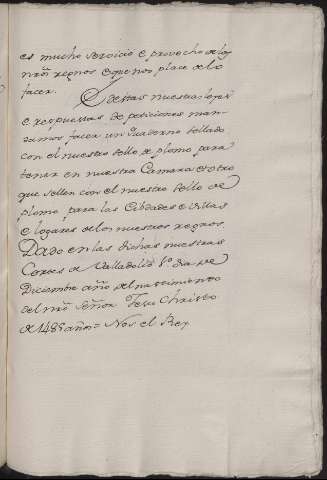 es mucho servicio e provecho de los
nrõs regnos e que nos place de lo
facer.
E destas nuestras leyes
e respuestas de peticiones man-
damos facer un Quaderno sellado
con el nuestro sello de plomo para
tener en nuestra Camara e otro
que sellen con el nuestro sello de
plomo para las Cibdades e villas
e logares de los nuestros regnos
Dado en las dichas nuestras
Cortes de Valladolid 1º dia de
Diciembre año del nascimiento
del nrõ Señor Jesu Christo
de años = Nos el Rey